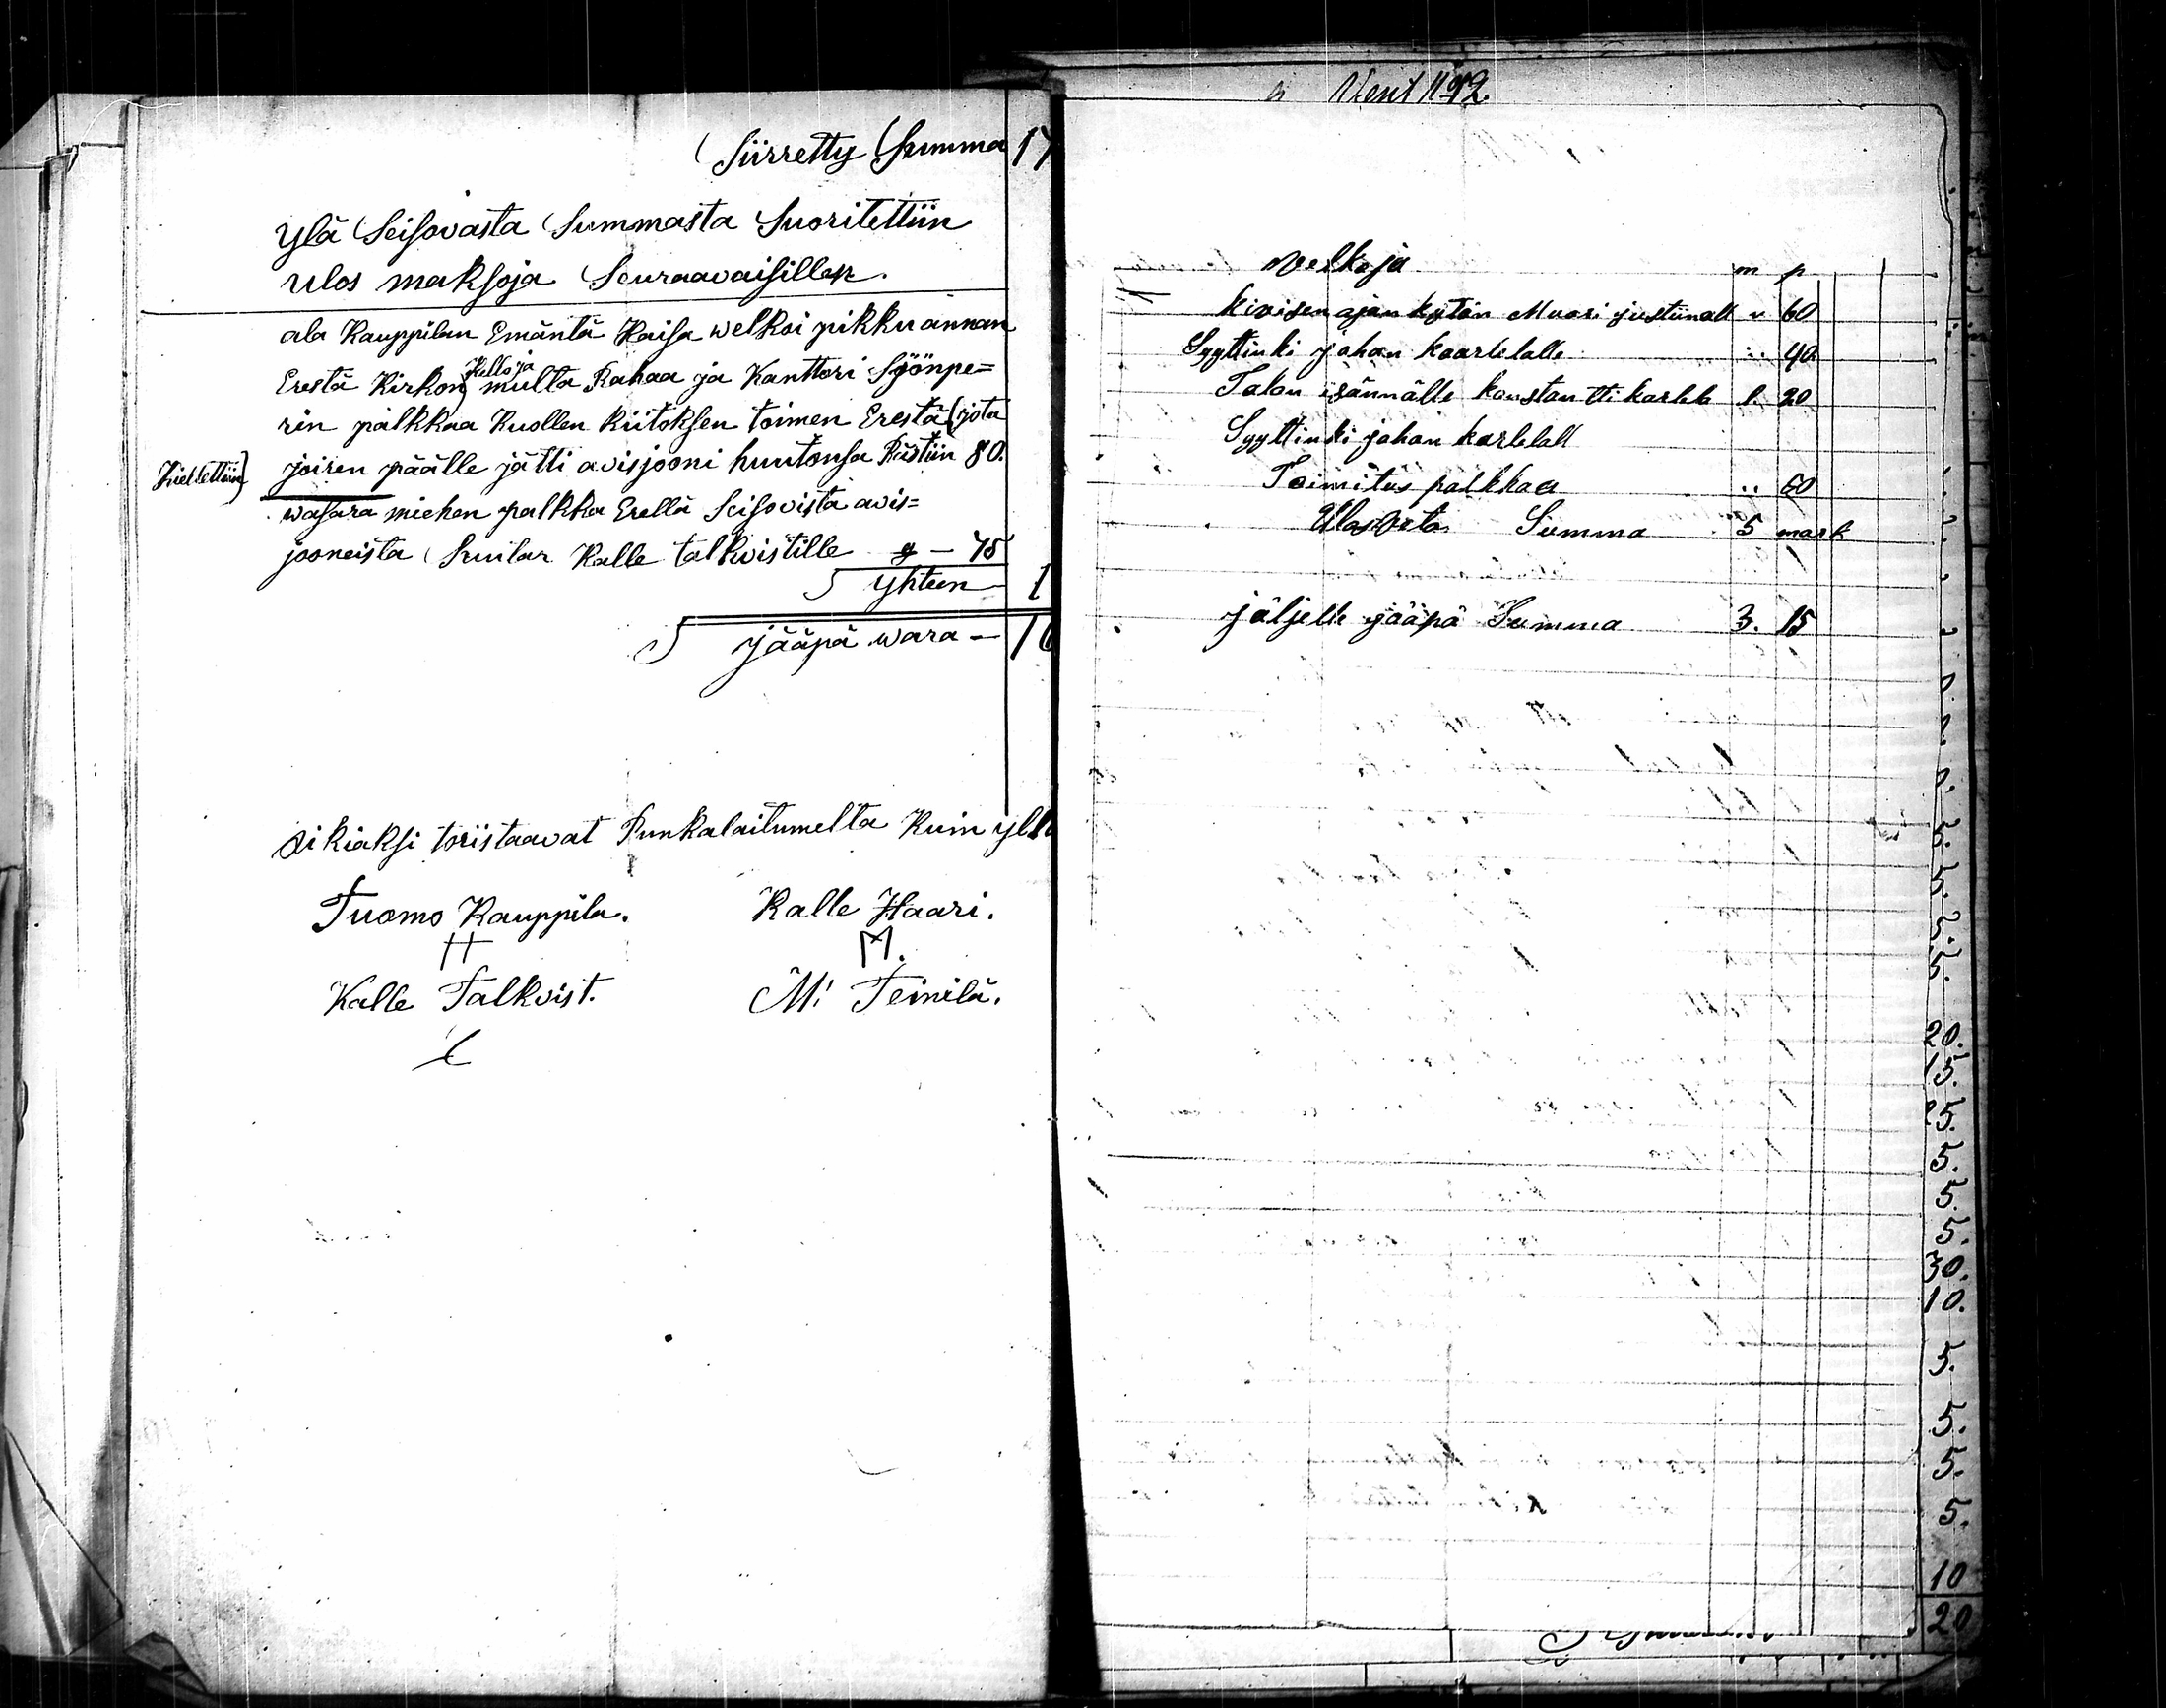 Siirretty Summa 17
Ylä Seisovasta Summasta Suoritettiin
ulos maksoja Seuraavaisillen.
ala Kauppilan Emäntä Kaisa welkoi pikku annan
Erestä Kirkon Kello ja multa Rahaa ja Kanttori Sjönpe=
rin palkkaa Kuollen kiitoksen toimen Erestä (jota
Kiellettiin) joiren päälle jätti avisjooni huutonsa Ristiin 80.
wasara miehen palkka Erellä Seisovista avis=
jooneista Suutar Kalle talkvistille — 75
Yhteen 1
Jääpä wara — 16
Oikiaksi toristaavat Punkalaitumelta Kuin yllä
Tuomo Kauppila. Kalle Haari.
Kalle Talkvist. M: Teinilä.
N 92.
Velkoja m p
kivisenojan kytän Muori justiinall " 60
Syyttinki johan kaarlelalle " 40
Talon isännälle konstantti karlela 1. 20
Syyttinki johan karlelall
Toimitus palkkaa " 60
Ulosveto Summa 5 mark
jäljelle jääpä Summa 3. 15
20.
5.
5.
5.
5.
30.
10.
5.
5.
5.
5.
10
20